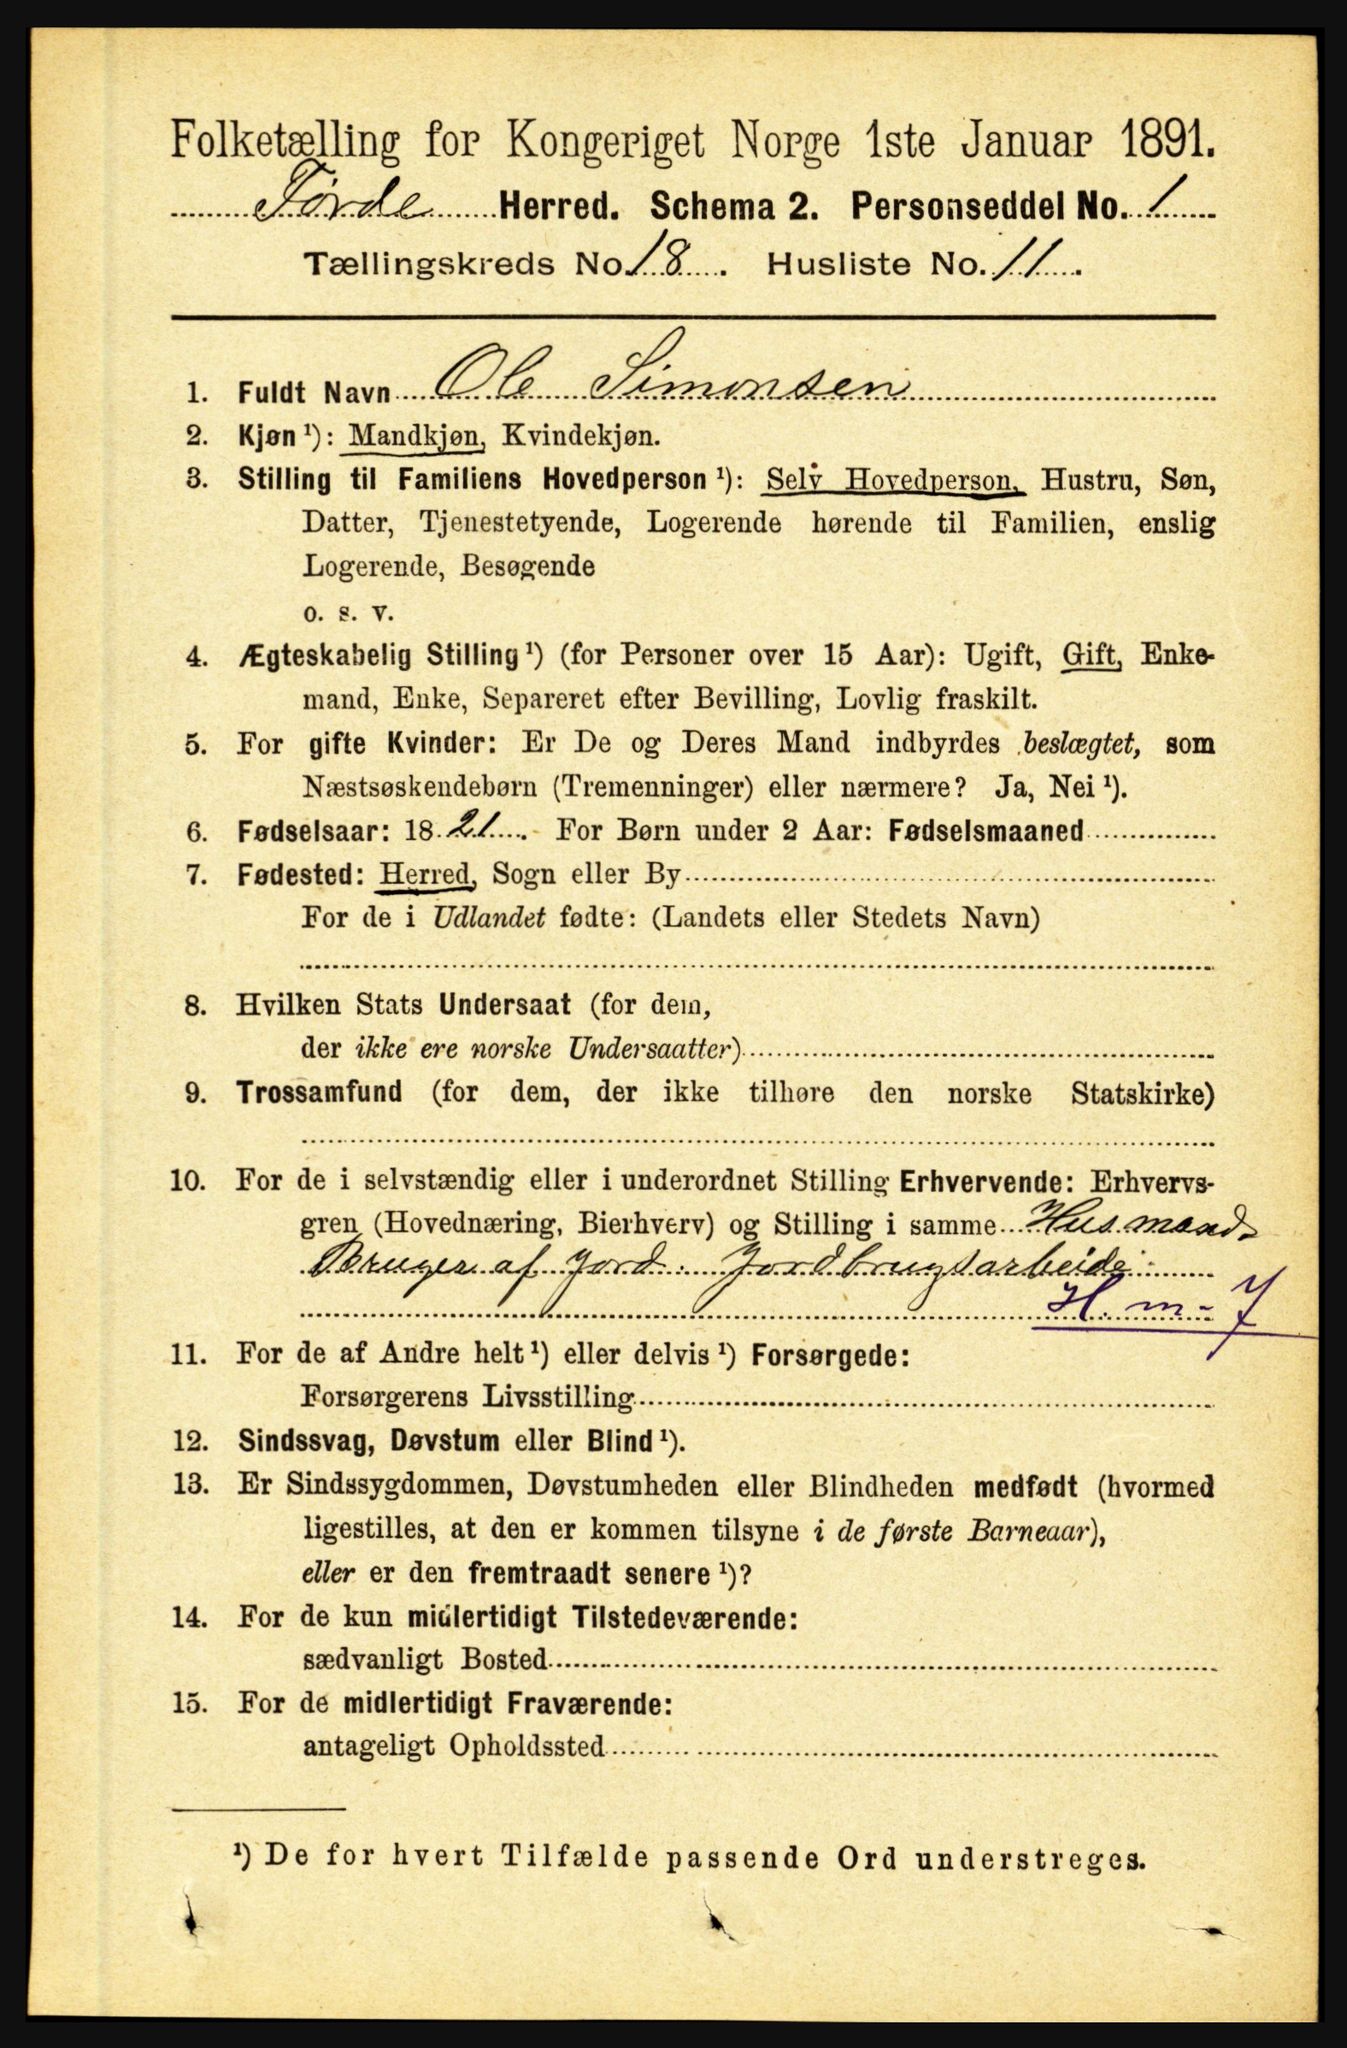 Folketælling for Kongeriget Norge 1ste Januar 1891.
Førde Herred. Schema 2. Personseddel No. 1
Tællingskreds No. 18. Husliste No. 11.
1. Fuldt Navn Ole Simonsen
2. Kjøn ¹): Mandkjøn, Kvindekjøn.
3. Stilling til Familiens Hovedperson ¹): Selv Hovedperson, Hustru, Søn,
Datter, Tjenestetyende, Logerende hørende til Familien, enslig
Logerende, Besøgende
o. s. v.
4. Ægteskabelig Stilling ¹) (for Personer over 15 Aar): Ugift, Gift, Enke-
mand, Enke, Separeret efter Bevilling, Lovlig fraskilt.
5. For gifte Kvinder: Er De og Deres Mand indbyrdes beslægtet, som
Næstsøskendebørn (Tremenninger) eller nærmere? Ja, Nei ¹).
6. Fødselsaar: 1821. For Børn under 2 Aar: Fødselsmaaned
7. Fødested: Herred, Sogn eller By
For de i Udlandet fødte: (Landets eller Stedets Navn)
8. Hvilken Stats Undersaat (for dem,
der ikke ere norske Undersaatter)
9. Trossamfund (for dem, der ikke tilhøre den norske Statskirke)
10. For de i selvstændig eller i underordnet Stilling Erhvervende: Erhvervs-
gren (Hovednæring, Bierhverv) og Stilling i samme Husmand.
Bruger af Jord. Jordbrugsarbeide
H. m - 7
11. For de af Andre helt ¹) eller delvis ¹) Forsørgede:
Forsørgerens Livsstilling
12. Sindssvag, Døvstum eller Blind ¹).
13. Er Sindssygdommen, Døvstumheden eller Blindheden medfødt (hvormed
ligestilles, at den er kommen tilsyne i de første Barneaar),
eller er den fremtraadt senere ¹)?
14. For de kun midlertidigt Tilstedeværende:
sædvanligt Bosted
15. For de midlertidigt Fraværende:
antageligt Opholdssted
¹) De for hvert Tilfælde passende Ord understreges.